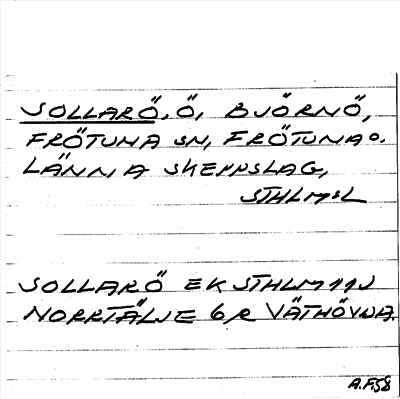 SOLLARÖ, Ö, BJÖRNÖ,
FRÖTUNA SN, FRÖTUNA O.
LÄNNA SKEPPSLAG,
STHLMSL
SOLLARÖ EK STHLM 11J
NORRTÄLJE 6R VÄTHÖVUA.
A.F.58